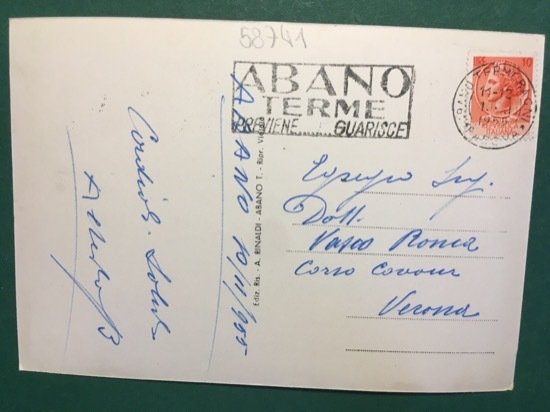 58741
ABANO
TERME
PREVIENE....... GUARISCE
10
ABANO 10/11/955
Cordiali Saluti
Ediz. Ris. - A. RINALDI - ABANO T. - Ripr. Vietata
Egregio Sig.
Dott.
Vasco Ronca
Corso Cavour
Verona